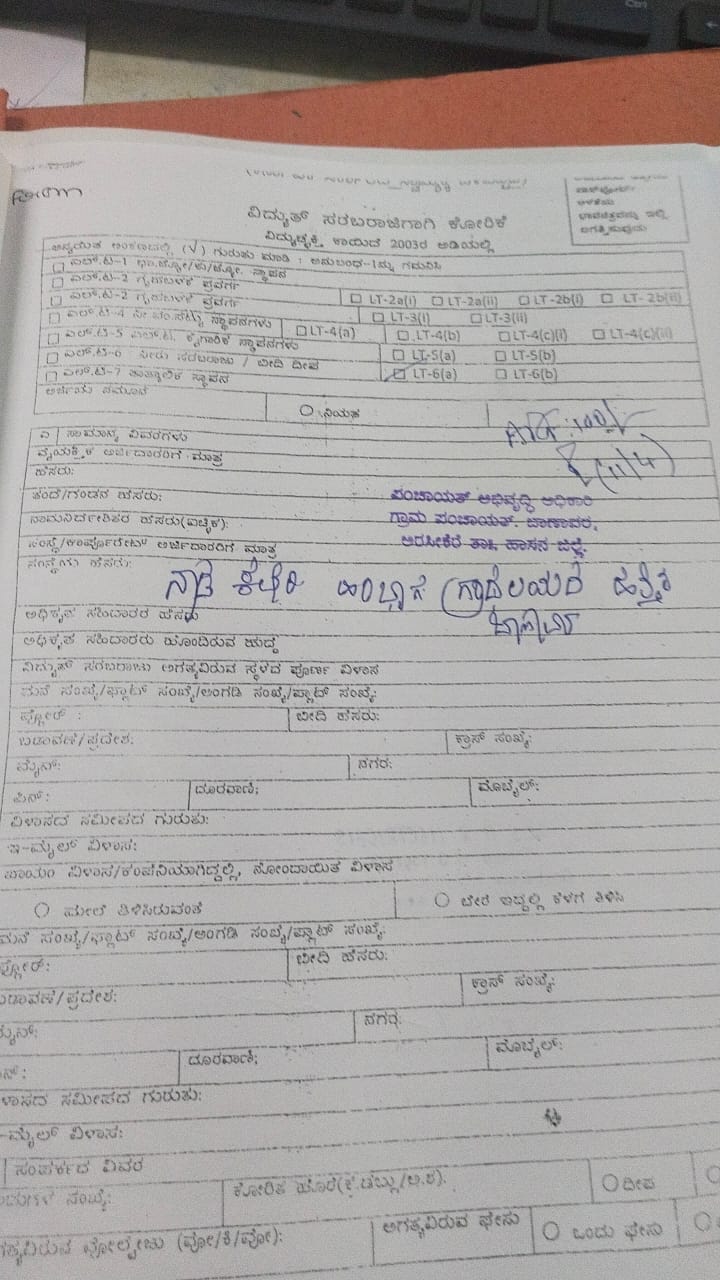 ವಿದ್ಯುತ್ ಸರಬರಾಜಿಗಾಗಿ ಕೋರಿಕೆ
ವಿದ್ಯುಚ್ಛಕ್ತಿ ಕಾಯಿದೆ 2003ರ ಅಡಿಯಲ್ಲಿ
ಅನ್ವಯಿತ ಅಂಕಣದಲ್ಲಿ (√) ಗುರುತು ಮಾಡಿ : ಅನುಬಂಧ-1ನ್ನು ಗಮನಿಸಿ
☐ ಎಲ್.ಟಿ-1
☐ ಎಲ್.ಟಿ-2 ಗೃಹಬಳಕೆ ಪ್ರವರ್ಗ
☐ ಎಲ್.ಟಿ-2 ಗೃಹಬಳಕೆ ಪ್ರವರ್ಗ ☐ LT-2a(i) ☐ LT-2a(ii) ☐ LT-2b(i) ☐ LT-2b(ii)
☐ ಎಲ್.ಟಿ-4 ನೀ.ಪಂ.ಸೆಟ್ಟು ಸ್ಥಾಪನಗಳು ☐ LT-3(i) ☐ LT-3(ii)
☐ ಎಲ್.ಟಿ-5 ಎಲ್.ಟಿ. ಕೈಗಾರಿಕೆ ಸ್ಥಾಪನಗಳು ☐ LT-4(a) ☐ LT-4(b) ☐ LT-4(c)(i) ☐ LT-4(c)(ii)
☐ ಎಲ್.ಟಿ-6 ನೀರು ಸರಬರಾಜು / ಬೀದಿ ದೀಪ ☐ LT-5(a) ☐ LT-5(b)
☐ ಎಲ್.ಟಿ-7 ತಾತ್ಕಾಲಿಕ ಸ್ಥಾಪನ ☐ LT-6(a) ☐ LT-6(b)
ಅರ್ಜಿಯ ನಮೂನೆ ○ ನಿಯತ
ಎ ಸಾಮಾನ್ಯ ವಿವರಗಳು
ವೈಯಕ್ತಿಕ ಅರ್ಜಿದಾರರಿಗೆ ಮಾತ್ರ
(11/4)
ಹೆಸರು:
ತಂದೆ/ಗಂಡನ ಹೆಸರು: ಪಂಚಾಯತ್ ಅಭಿವೃದ್ಧಿ ಅಧಿಕಾರಿ
ನಾಮನಿರ್ದೇಶಿತರ ಹೆಸರು(ಐಚ್ಛಿಕ): ಗ್ರಾಮ ಪಂಚಾಯತ್. ಬಾಣಾವರ,
ಸಂಸ್ಥೆ/ಕಾರ್ಪೊರೇಟ್ ಅರ್ಜಿದಾರರಿಗೆ ಮಾತ್ರ ಅರಸೀಕೆರೆ ತಾ॥ ಹಾಸನ ಜಿಲ್ಲೆ.
ಸಂಸ್ಥೆಯ ಹೆಸರು:
ಹತ್ತಿರ
ಅಧಿಕೃತ ಸಹಿದಾರರ ಹೆಸರು
ಅಧಿಕೃತ ಸಹಿದಾರರು ಹೊಂದಿರುವ ಹುದ್ದೆ
ವಿದ್ಯುತ್ ಸರಬರಾಜು ಅಗತ್ಯವಿರುವ ಸ್ಥಳದ ಪೂರ್ಣ ವಿಳಾಸ
ಮನೆ ಸಂಖ್ಯೆ/ಫ್ಲಾಟ್ ಸಂಖ್ಯೆ/ಅಂಗಡಿ ಸಂಖ್ಯೆ/ಪ್ಲಾಟ್ ಸಂಖ್ಯೆ:
ಫ್ಲೋರ್ : ಬೀದಿ ಹೆಸರು:
ಬಡಾವಣೆ/ಪ್ರದೇಶ: ಕ್ರಾಸ್ ಸಂಖ್ಯೆ:
ಮೈನ್: ನಗರ:
ಪಿನ್: ದೂರವಾಣಿ: ಮೊಬೈಲ್:
ವಿಳಾಸದ ಸಮೀಪದ ಗುರುತು:
ಇ-ಮೈಲ್ ವಿಳಾಸ:
ಖಾಯಂ ವಿಳಾಸ/ಕಂಪನಿಯಾಗಿದ್ದಲ್ಲಿ, ನೋಂದಾಯಿತ ವಿಳಾಸ
○ ಮೇಲೆ ತಿಳಿಸಿರುವಂತೆ ○ ಬೇರೆ ಇದ್ದಲ್ಲಿ ಕೆಳಗೆ ತಿಳಿಸಿ
ಮನೆ ಸಂಖ್ಯೆ/ಫ್ಲಾಟ್ ಸಂಖ್ಯೆ/ಅಂಗಡಿ ಸಂಖ್ಯೆ/ಪ್ಲಾಟ್ ಸಂಖ್ಯೆ:
ಫ್ಲೋರ್: ಬೀದಿ ಹೆಸರು:
ಬಡಾವಣೆ/ಪ್ರದೇಶ: ಕ್ರಾಸ್ ಸಂಖ್ಯೆ:
ಮೈನ್: ನಗರ:
ಪಿನ್: ದೂರವಾಣಿ: ಮೊಬೈಲ್:
ವಿಳಾಸದ ಸಮೀಪದ ಗುರುತು:
ಇ-ಮೈಲ್ ವಿಳಾಸ:
ಸಂಪರ್ಕದ ವಿವರ
ಸಂಖ್ಯೆ: ಕೋರಿಕೆ ಹೊರೆ ○ ದೀಪ
ಅಗತ್ಯವಿರುವ ವೋಲ್ಟೇಜು ಅಗತ್ಯವಿರುವ ಫೇಸು ○ ಒಂದು ಫೇಸು